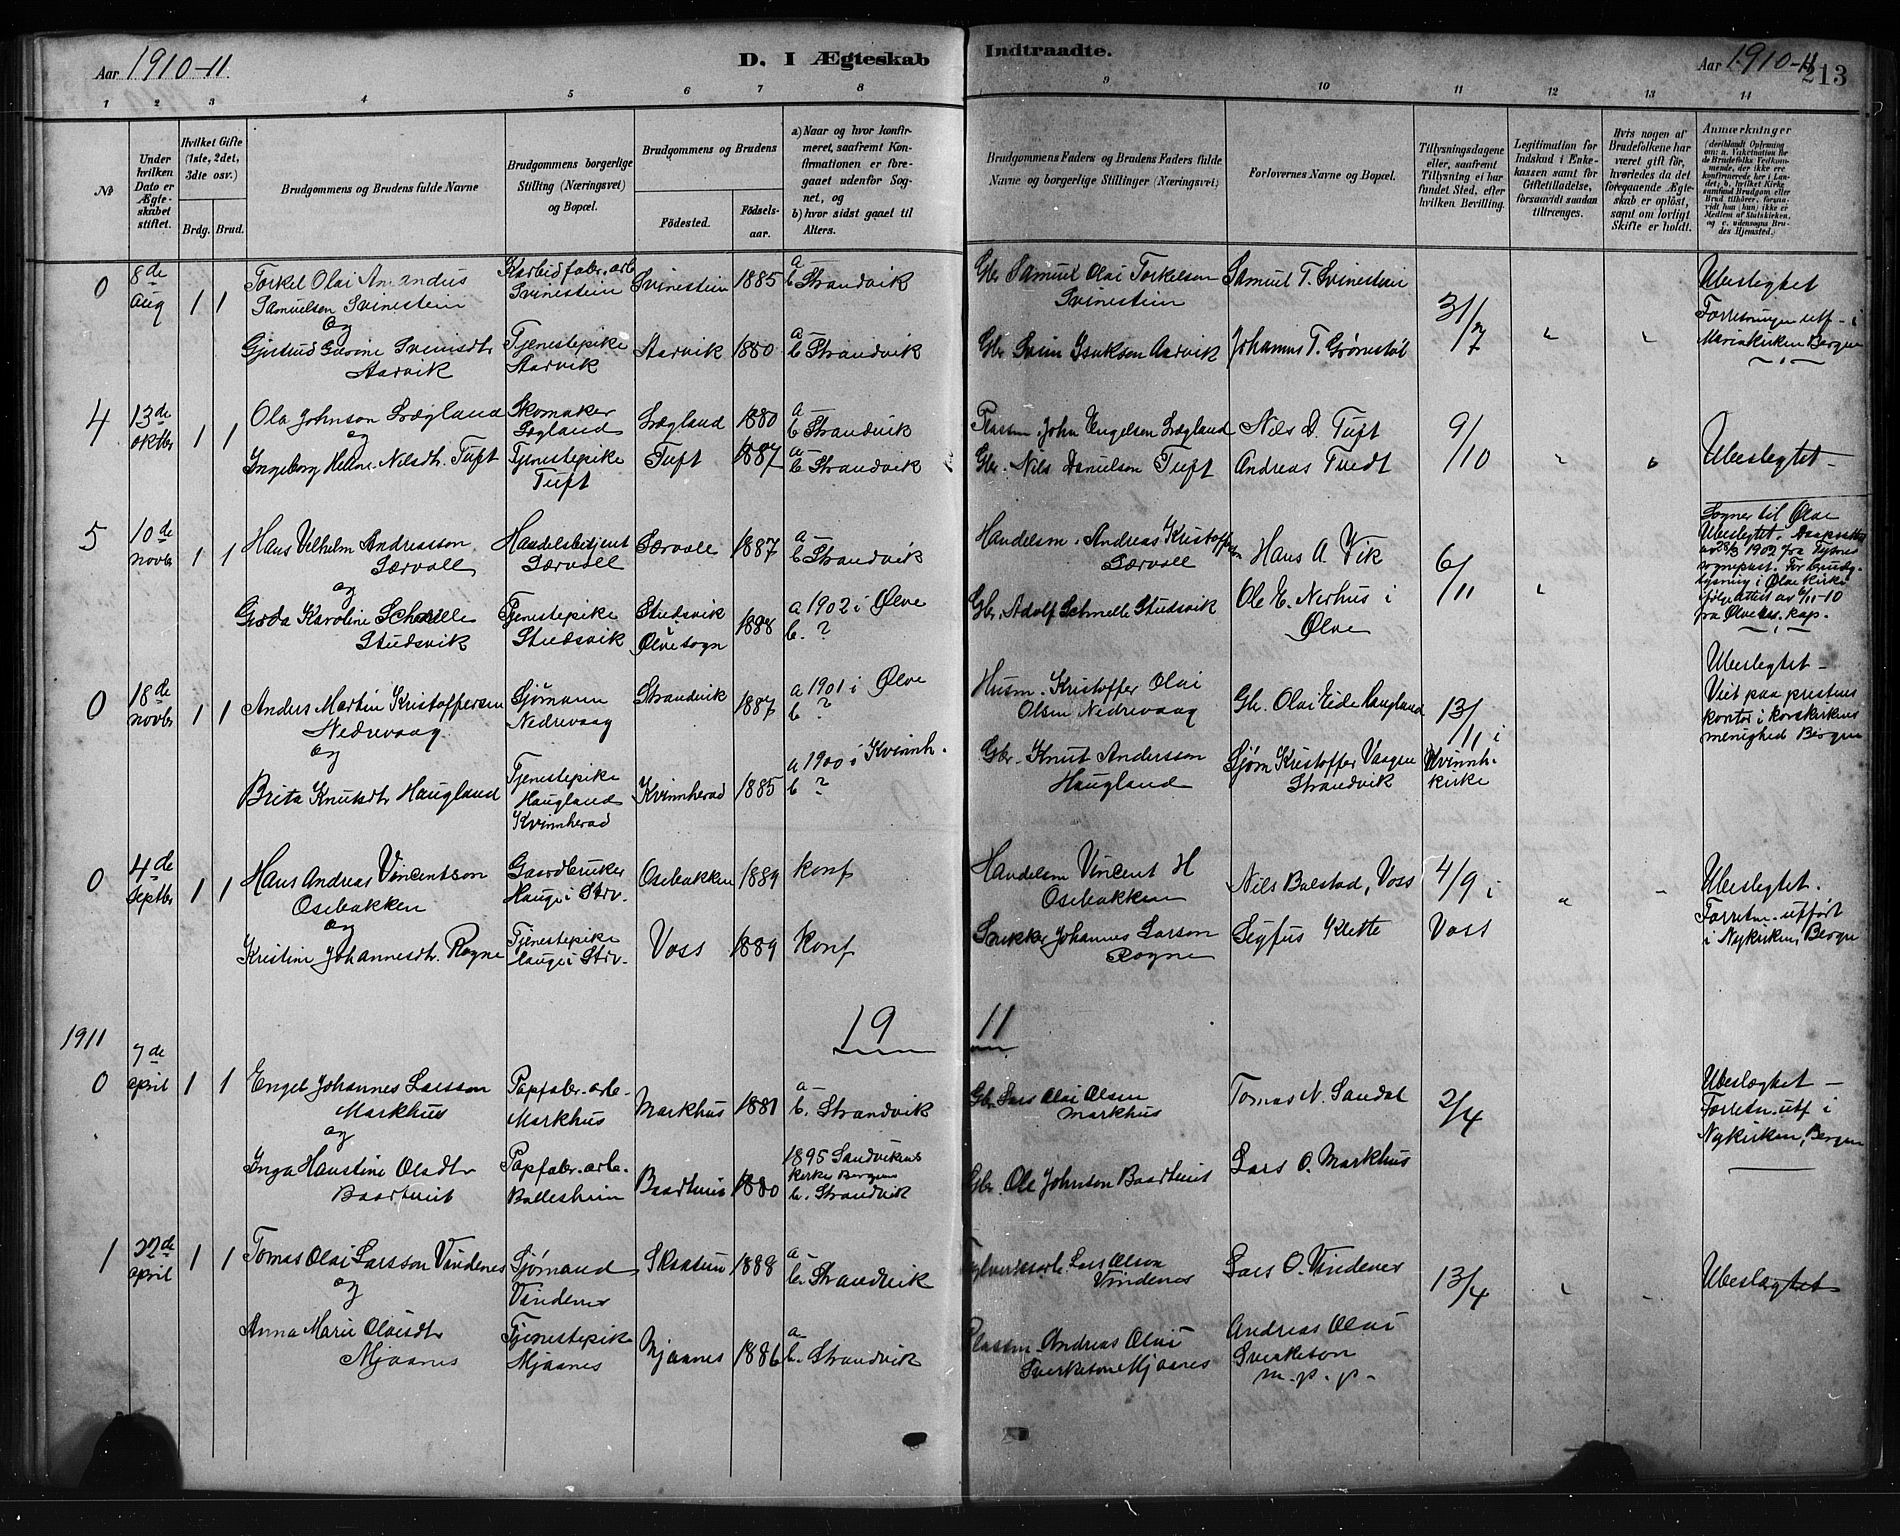 Aar 1910-11.
D. I Ægteskab
Indtraadte.
Aar 1910-11
213
1 2 3 4 5 6 7 8
9 10 11 12 13 14
No
Under hvilken Dato er Ægteskabet stiftet.
Hvilket Gifte (1ste, 2det, 3die osv.)
Brdg. Brud.
Brudgommens og Brudens fulde Navne
Brudgommens borgerlige Stilling (Næringsvei) og Bopæl.
Brudgommens og Brudens
Fødested.
Fødselsaar.
a) Naar og hvor konfirmeret, saafremt Konfirmationen er foregaaet udenfor Sognet, og
b) hvor sidst gaaet til Alters.
Brudgommens Faders og Brudens Faders fulde Navne og borgerlige Stillinger (Næringsvei)
Forlovernes Navne og Bopæl.
Tillysningsdagene eller, saafremt Tillysning ei har fundet Sted, efter hvilken Bevilling.
Legitimation for Indskud i Enkekassen samt for Giftetilladelse, forsaavidt saadan tiltrænges.
Hvis nogen af Brudefolkene har været gift før, hvorledes da det foregaaende Ægteskab er opløst, samt om lovligt Skifte er holdt.
Anmærkninger
0 8de aug 1 1
Torkel Olai Amandus Samuelson Svinestein
Karbidfabr.arb. Svinestein
Svinestein 1885
a — b Strandvik
Gbr Samuel Olai Torkelson Svinestein
Samuel T. Svinestein
31/7
Ubeslegtet
Forretningen utf. i Mariakirken Bergen
og
Gjertrud Gurine Sveinsdtr Aarvik
Tjenestepike Aarvik
Aarvik 1880
a — b Strandvik
Gbr Svein Isakson Aarvik
Johannes T. Grønestøl
4 13de oktbr 1 1
Ola Johnson Lægland
Skomaker Lægland
Lægland 1880
a — b Strandvik
Plassm. John Engelsen Lægland
Nils D. Tuft
9/10
Ubeslegtet
og
Ingeborg Helene Nilsdtr. Tuft
Tjenestepike Tuft
Tuft 1887
a — b Strandvik
Gbr. Nils Danielson Tuft
Andreas Tuedt
5 10de novbr 1 1
Hans Vilhelm Andreasson Særvoll
Handelsbetjent Særvoll
Særvoll 1887
a — b Strandvik
Handelsm. Andreas Kristofferson Særvoll
Hans A. Vik
6/11
Sogner til Ølve
Ubeslegtet.
1902 fra Tysnes
i Ølve kirke
og
Karoline Schnelle Studsvik
Tjenestepike Studsvik
Studsvik Ølve sogn 1888
a 1902 i Ølve
b. ?
Gbr. Adolf Schnelle Studsvik
Ole E. Nerhus i Ølve
0 18de novbr 1 1
Anders Martin Kristoffersen Nedrevaag
Sjømann Nedrevaag
Strandvik 1887
a 1901 i Ølve
b ?
Husm. Kristoffer Olai Olsen Nedrevaag
Gbr. Olai Eide Haugland
13/11 i Kvinnh. kirke
Ubeslegtet —
Viet paa prestens kontor i korskirkens menighed Bergen
og
Brita Knutsdtr Haugland
Tjenestepike Haugland Kvinnherad
Kvinnherad 1885
a 1900 i Kvinnh.
b ?
Gbr. Knut Andersson Haugland
Sjøm Kristoffer Vaagen Strandvik
0 4de Septbr 1 1
Hans Andreas Vincentson Osebakken
Gaardbruker Hauge i Strv.
Osebakken 1889
konf
Handelsm Vincent H Osebakken
Nils Balstad, Voss
4/9 i Voss
Ubeslegtet.
Forretn. utført i Nykirken, Bergen
og
Kristine Johannesdtr. Rogne
Tjenestepike Hauge i Strv.
Voss 1889
konf
Snikker Johannes Larson Rogne
Sigfus Klette
19 11
1911
0 7de april 1 1
Engel Johannes Larsson Markhus
Papfabr. arb. Markhus
Markhus 1881
a — b. Strandvik
Gbr Lars Olai Olsen Markhus
Tomas N. Sandal
2/4
Ubeslægtet —
Forretn. utf i Nykirken, Bergen
og
Inga Haustine Olsdtr Baartveit
Papfabr. arb. Balleshein
Baartveit 1880
1895 Sandvikens kirke Bergen
b. Strandvik
Gbr. Ole Johnson Baartveit
Lars O. Markhus
1 22de april 1 1
Tomas Olai Larsson Vindenes
Sjømand Vindenes
Skaatun 1888
a — b. Strandvik
Lars Olson Vindenes
Lars O. Vindenes
13/4
Ubeslægtet
og
Anna Marie Olaisdtr Mjaanes
Tjenestepike Mjaanes
Mjaanes 1886
a — b. Strandvik
Plassm. Andreas Olai Sverkeson Mjaanes
Andreas Olai Sverkeson
m. p. p.